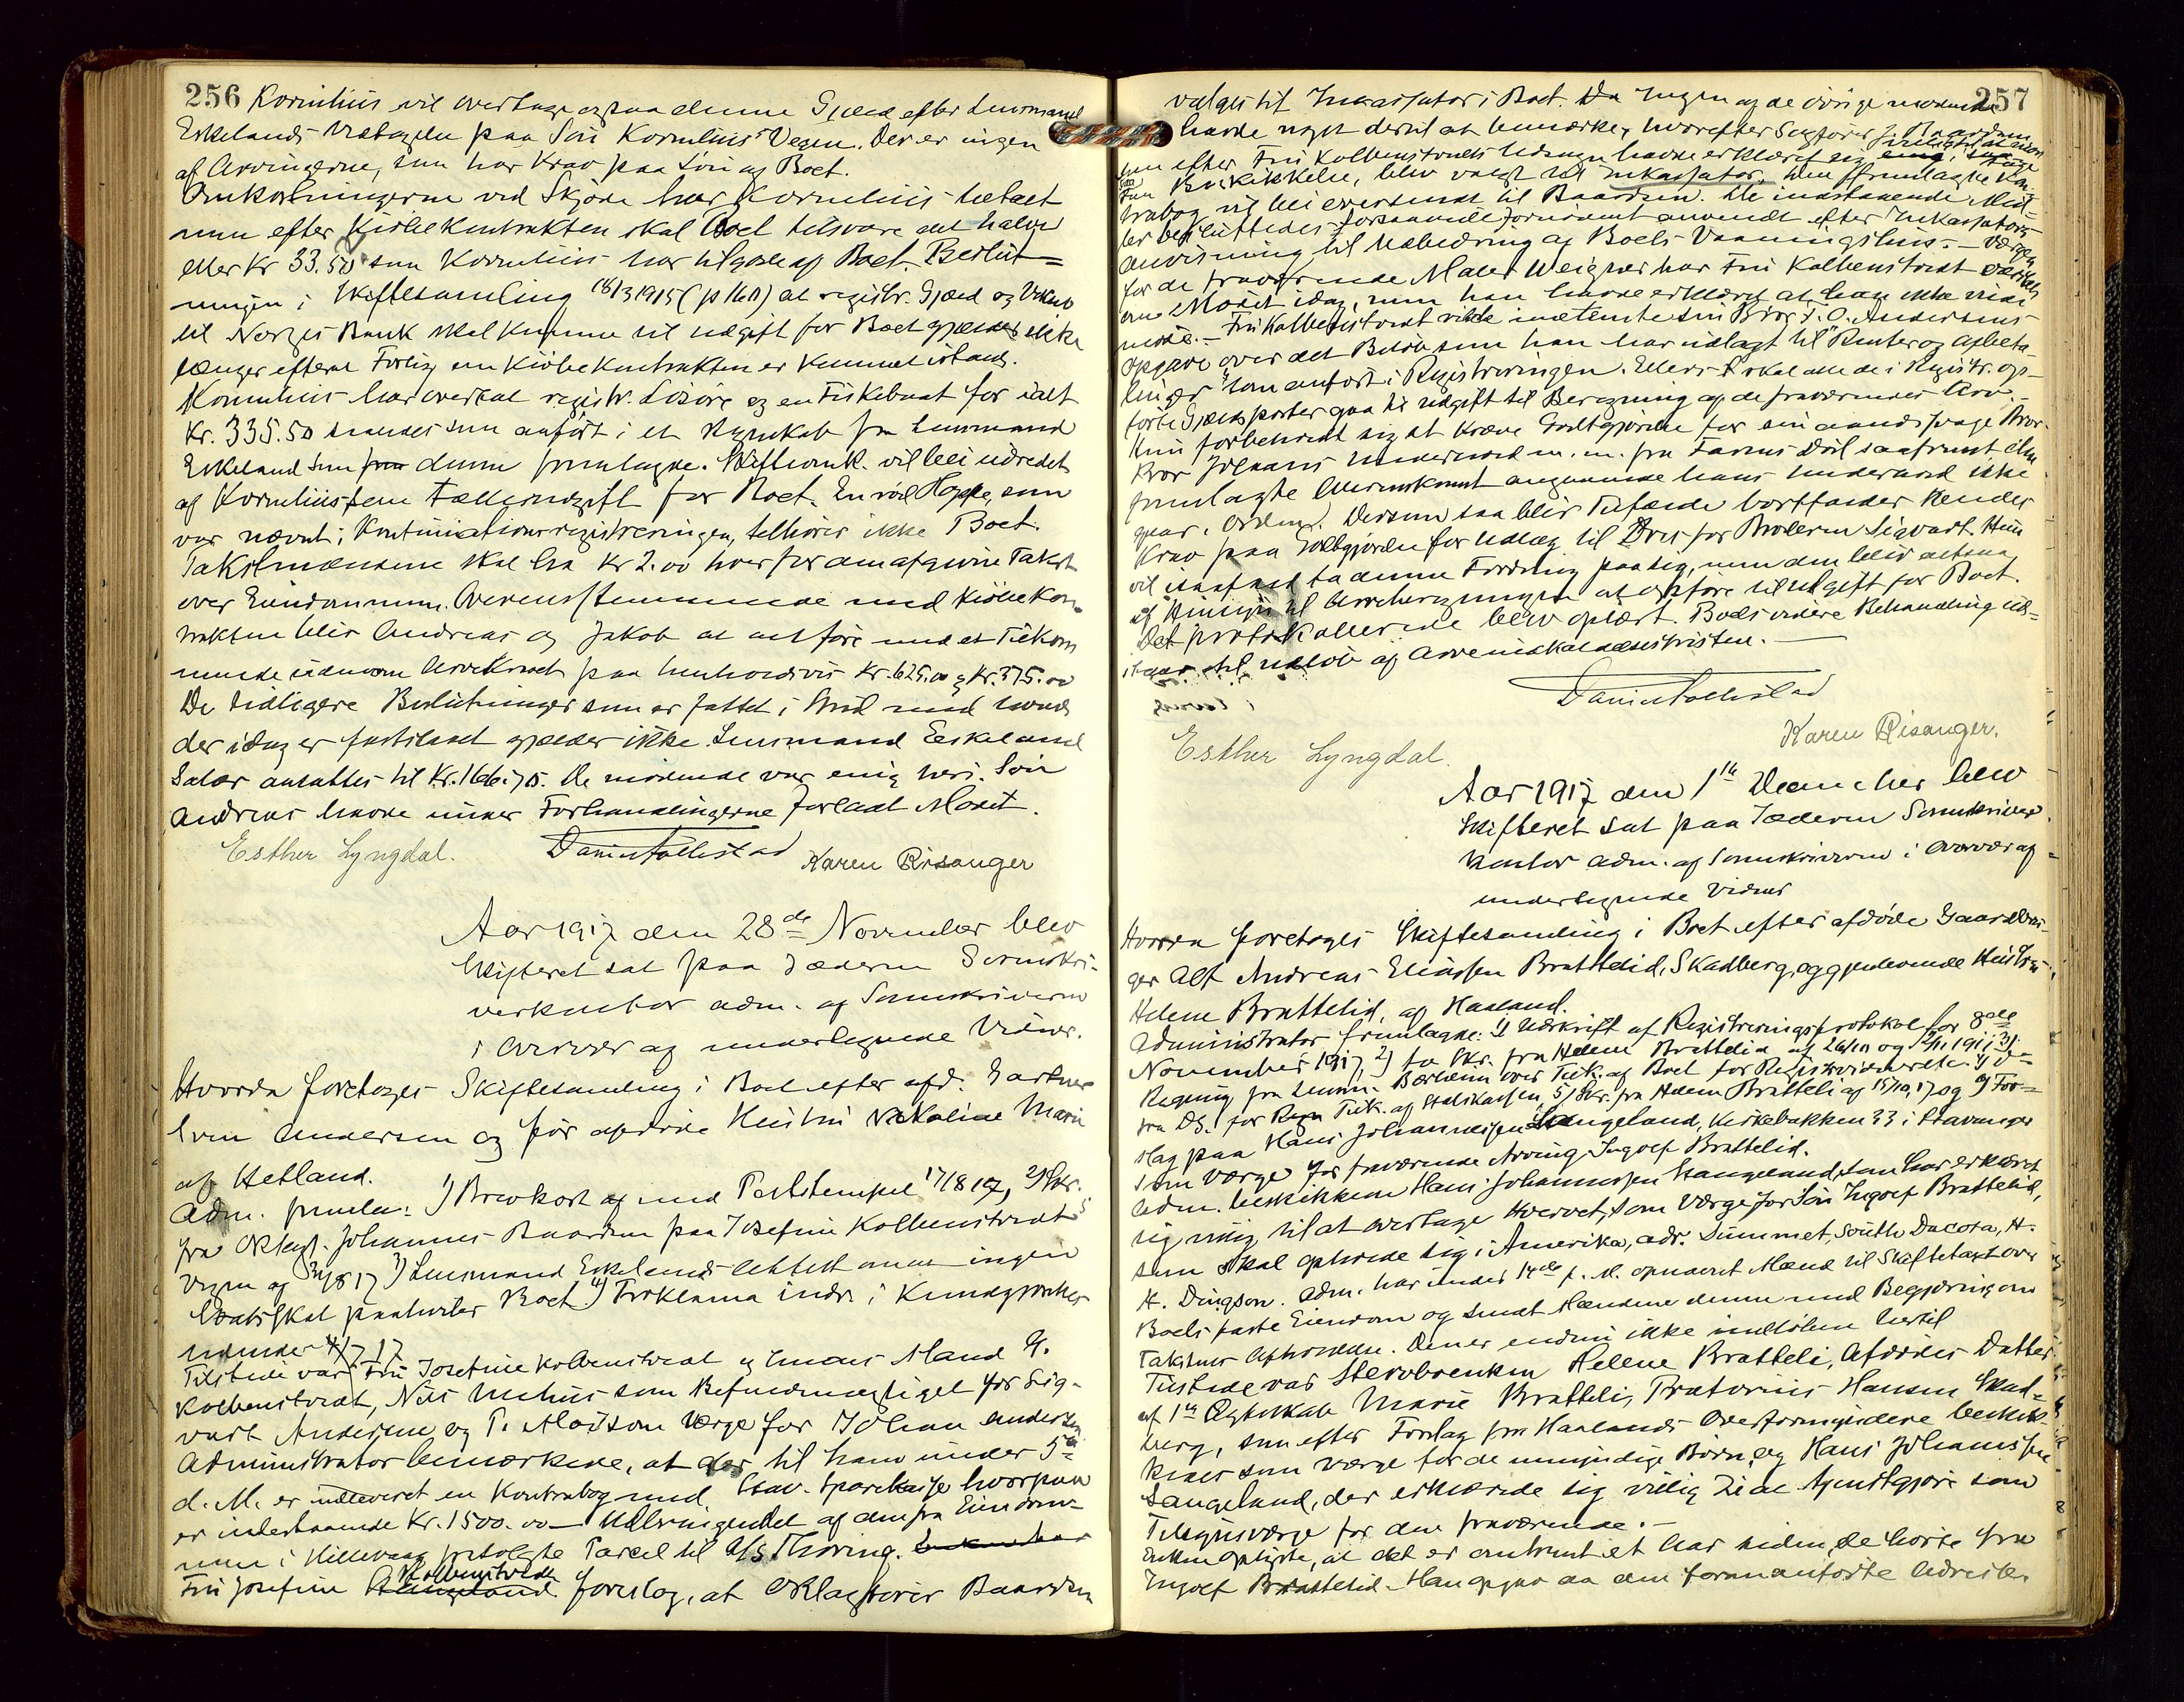 256
Kornelius vil overtage ogsaa denne Gjæld efter Lensmand
Eskelands Vedtagelse paa Søn Kornelius' Vegne. Der er ingen
af Arvingerne, som har Krav paa Løn og Boet.
Omkostningerne ved Skjøde har Kornelius betalt
men efter Kjøbekontrakten skal Boet tilsvare det halve
eller Kr 33.50 som Kornelius har tilgode af Boet. Beslut=
ningen i Skiftesamling 18/3 1915 (p 160) at registr. Gjæld og
til Norges Bank skal komme til udgift for Boet gjælder ikke
længer efterat Forlig om Kjøbekontrakten er kommet istand.
Kornelius har overtat registr. Løsøre og en Fiskebaat for ialt
Kr. 335.50 saaledes som anført i et Regnskab fra Lensmand
Eskeland som denne fremlagde. Skifteomk. vil bli udredet
af Kornelius som Fællesudgift for Boet. En rød Hoppe, som
var nævnt i Kontinuationsregistreringen, tilhører ikke Boet.
Takstmændene skal ha Kr 2.00 hver for en afgiven Takst
over Eiendommen. Overensstemmende med Kjøbekon=
trakten blir Andreas og Jakob at anføre med et Tilkom
mende udenom Arvekravet paa henholdsvis Kr. 625.00 og Kr. 375.00
De tidligere Beslutninger som er fattet i Strid med hvad
der idag er fastslaaet gjælder ikke. Lensmand Eskeland
Salær ansattes til Kr. 166.70. De mødende var enig heri. Søn
Andreas havde under Forhandlingerne forladt Mødet.
Esther Lyngdal. Karen Risanger
Aar 1917 den 28de November blev
Skifteret sat paa Jæderen Sorenskri-
verkontor adm. af Sorenskriveren
i Overvær af undertegnede Vidner.
Hvorda foretoges Skiftesamling i Boet efter afd. Gartner
Sven Andersen og før afdøde Hustru Nikoline Marie
af Hetland.
Adm. fremla: 1) Brevkort af med Poststempel 17/8 17, 2) Skr.
fra ORsagf. Johannes Baardsen paa Josefine Kolbenstvedts
Vegne af 31/8 17 3) Lensmand Eskelands Attest om at ingen
Statsskat paahviler Boet 4) Proklama indr. i Kundgjørelses
tidende 4/7 17
Tilstede var Fru Josefine Kolbenstvedt og hendes Mand G.
Kolbenstvedt, Nils som Befuldmægtiget for Sig-
vart Andersen og T. som Værge for Johan Andersen
Administrator bemærkede, at der til ham under 5te
d. M. er indleveret en Kontrabog med Stav. Sparekasse hvorpaa
er indestaaende Kr. 1500.00 — Udbringendet af den fra Eiendom-
men i Hillevaag frasolgte Parcel til A/S Thoring.
Fru Josefine Kolbenstvedt foreslog, at ORsagfører Baardsen
257
valgtes til Inkassator i Boet. Da Ingen af de øvrige mødende
havde noget dertil at bemærke, hvorefter Sagfører J. Baardsen
som efter Fru Kolbenstvedts Udsagn havde erklæret sig
Beskikkelse, blev valgt til Inkassator. Den fremlagte Kon
trabog vil bli oversendt til Baardsen. De indestaaende Mid-
ler besluttedes forsaavidt fornødent anvendt efter Inkassators
anvisning til Udbedring af Boets Vaaningshus. — Værgen
for de fraværende Maler Weigner har Fru Kolbenstvedt
om Mødet idag, men han havde erklæret at han ikke vilde
møde. — Fru Kolbenstvedt vilde indhente sin Bror J. O. Andersens
Opgave over det Beløb som han har udlagt til "Renter og Afbeta-
linger" som anført i Registreringen. Ellers skal alle de i Registr. op-
førte Gjældsposter gaa til udgift til Beregning af de fraværendes Arv. —
Hun forbeholdt sig at kræve Godtgjørelse for sin aandssvage Bror
Bror Johans Underhold m. m. fra Farens Død saafremt den
fremlagte Overenskomst angaaende hans Underhold ikke
gaar i Orden. Dersom saa blir Tilfælde bortfalder hendes
Krav paa Godtgjørelse for Udlæg til for Broderen Sigvart. Hun
vil isaafald ta denne Fordring paa sig, men den blir altsaa
af Hensyn til Arveberegningen at opføre til Udgift for Boet.
Det protokollerede blev oplæst. Boets videre Behandling ud=
staar til udløb af Arveindkaldelsesfristen. —
Esther Lyngdal. Karen Risanger.
Aar 1917 den 1ste December blev
Skifteret sat paa Jæderen Sorenskriver
Kontor adm. af Sorenskriveren i Overvær af =
undertegnede Vidner
Hvorda foretoges Skiftesamling i Boet efter afdøde Gaardbru-
ger Alf Andreas Eliassen Brattelid, Skadberg, og gjenlevende Hustru
Helene Brattelid, af Haaland.
Administrator fremlagde: 1) Udskrift af Registreringsprotokol for 8de
November 1917, 2) to Skr. fra Helene Brattelid af 26/10 og 2/11 1917 3)
Regning fra Lensm. Bærheim over Tilk. af Boet for Registr
fra DS. for Tilk. af Statskassen, 5) Skr. fra Helene Bratteli af 15/10 17 og 6) For=
slag paa Hans Johannessen Langeland, Kirkebakken 33 i Stavanger
som Værge for fraværende Arving Ingolf Brattelid.
Adm. beskikkede Hans Johannessen Langeland, som har erklæret
sig villig til at overtage Hvervet, som Værge for Søn Ingolf Brattelid,
som skal opholde sig i Amerika, adr. Summet, South Dacota, H.
H. Dingson. Adm. har under 14de f. M. opnævnt Mænd til Skiftetaxt over
Boets faste Eiendom og sendt Mændene denne med Begjæring om
Takstens Afholdelse. Den er endnu ikke indløben hertil
Tilstede var Stervboenken Helene Bratteli, Afdødes Datter
af 1ste Ægteskab Marie Bratteli, Prætorius Hansen Skad=
berg, som efter Forslag fra Haalands Overformynderi beskik-
kedes som Værge for de umyndige Børn, og Hans Johannessen
Langeland, der erklærede sig villig til at tjenstgjøre som
Tilsynsværge for den fraværende. —
Enken oplyste, at det er omtrent et Aar siden de hørte fra
Ingolf Brattelid. Han opgav da den foranførte Adresse.